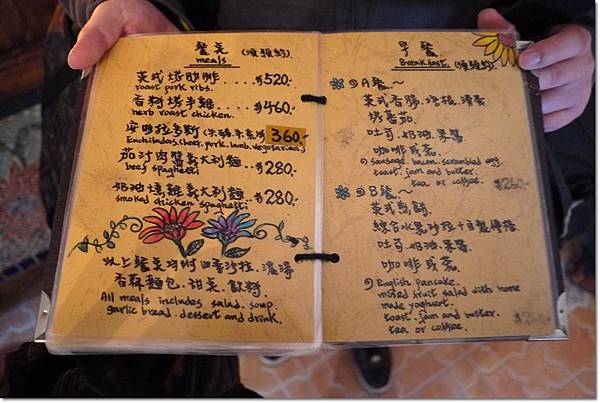 餐点 (須預約)
meals
英式烤肋排....$520.
roast pork ribs.
香料烤半雞....$460.
herb roast chicken.
安姬拉多斯 360.-
Enchiladas, pork, lamb, vegetarian.
茄汁肉醬義大利麵....$280.
beef spaghetti
奶油燻雞義大利麵....$280.
smoked chicken spaghetti
以上餐点均附田園沙拉.濃湯
香蒜麵包.甜点.飲料.
All meals includes salad. soup.
garlic bread. dessert and drink.
早餐
Breakfast. (須預約)
A餐.~
英式香腸.培根.滑蛋
烤蕃茄.
吐司.奶油.果醬
咖啡或茶.
sausage. bacon. scrambled egg.
toast. jam and butter.
tea or coffee. $260.-
B餐.~
英式煎餅.
綜合水果沙拉+自製優格
吐司.奶油.果醬.
咖啡或茶.
English pancake.
mixed fruit salad with home
made yoghert.
toast. jam and butter.
tea or coffee. $260.-